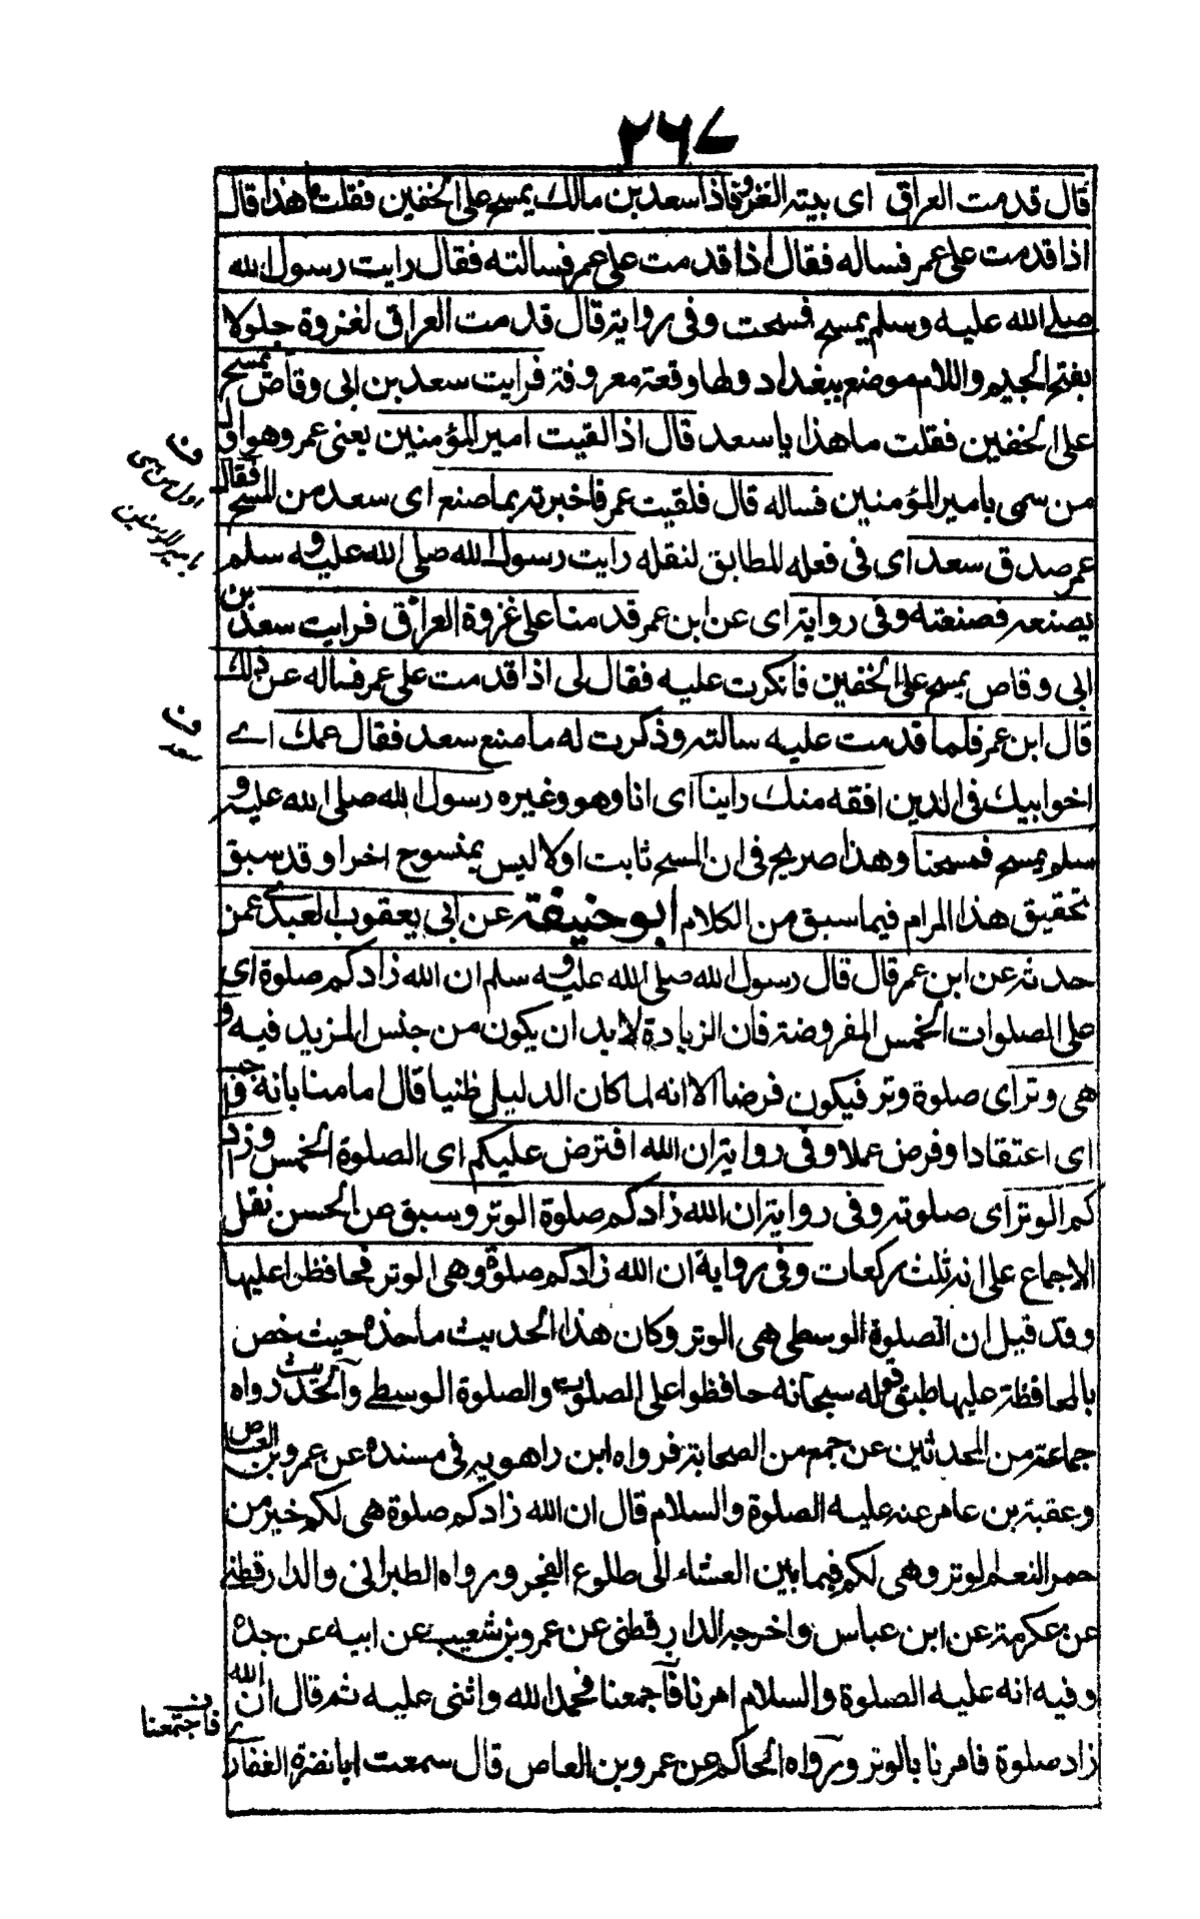 ٢٦٧
قال قدمت العراق اى بيته الغزو فاذا سعد بن مالك يمسح على الخفين فقلت ما هذا قال
اذا قدمت على عمر فساله فقال اذا قدمت على عمر فسالته فقال رايت رسول الله
صلى الله عليه وسلم يمسح فمسحت وفى رواية قال قدمت العراق لغزوة جلولا
بفتح الجيم واللام موضع ببغداد ولها وقعة معروفة فرايت سعد بن ابى وقاص يمسح
على الخفين فقلت ما هذا يا سعد قال اذا لقيت امير المؤمنين يعنى عمر وهو اول
من سمى بامير المؤمنين فساله قال فلقيت عمر فاخبرته بما صنع اى سعد من المسح فقال
عمر صدق سعد اى فى فعله المطابق لنقله رايت رسول الله صلى الله عليه و سلم
يصنعه فصنعته وفى رواية اى عن ابن عمر قدمنا على غزوة العراق فرايت سعد بن
ابى وقاص يمسح على الخفين فانكرت عليه فقال لى اذا قدمت على عمر فساله عن ذلك
قال ابن عمر فلما قدمت عليه سالته وذكرت له ما صنع سعد فقال عمك اے
اخو ابيك فى الدين افقه منك راينا اى انا وهو وغيره رسول الله صلى الله عليه و
سلم يمسح فمسحنا وهذا صريح فى ان المسح ثابت اولا ليس بمنسوخ اخرا وقد سبق
تحقيق هذا المرام فيما سبق من الكلام ابو حنيفة عن ابى يعقوب العبدے عمن
حدثه عن ابن عمر قال قال رسول الله صلى الله عليه و سلم ان الله زادكم صلوة اى
على الصلوات الخمس المفروضة فان الزيادة لابد ان يكون من جنس المزيد فيه و
هى وتر اى صلوة وتر فيكون فرضا الا انه لما كان الدليل ظنيا قال امامنا بانه واجب
اى اعتقادا وفرض عملا وفى رواية ان الله افترض عليكم اى الصلوة الخمس وزاد
كم الوتر اى صلوته وفى رواية ان الله زادكم صلوة الوتر وسبق عن الحسن نقل
الاجماع على انه ثلث ركعات وفى رواية ان الله زادكم صلوة وهى الوتر فحافظوا عليها
وقد قيل ان الصلوة الوسطى هى الوتر وكان هذا الحديث ماخذه حيث خص
بالمحافظة عليها طبق قوله سبحانه حافظوا على الصلوت والصلوة الوسطے والحديث رواه
جماعة من المحدثين عن جمع من الصحابة فرواه ابن راهويه فى مسنده عن عمرو بن العاص
وعقبة بن عامر عنه عليه الصلوة والسلام قال ان الله زادكم صلوة هى لكم خير من
حمر النعم الوتر وهى لكم فيما بين العشاء الى طلوع الفجر ورواه الطبرانى والدارقطنے
عن عكرمة عن ابن عباس واخرجه الدارقطنى عن عمرو بن شعيب عن ابيه عن جده
وفيه انه عليه الصلوة والسلام امرنا فاجمعنا فحمد الله واثنى عليه ثم قال ان الله
زاد صلوة فامرنا بالوتر ورواه الحاكم عن عمرو بن العاص قال سمعت ابا نضرة الغفارے
ف
اول من سمى
بامير المؤمنين
ف
سعد
ن
فاجتمعنا